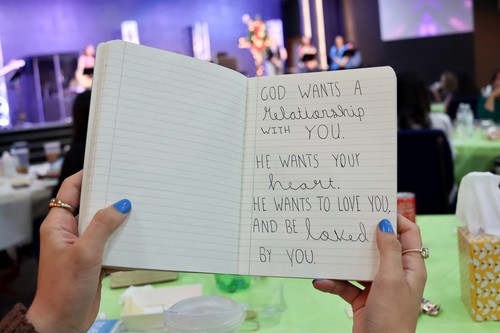 GOD WANTS A
Relationship
WITH YOU.
HE WANTS YOUR
heart.
HE WANTS TO LOVE YOU,
AND BE loved
BY YOU.